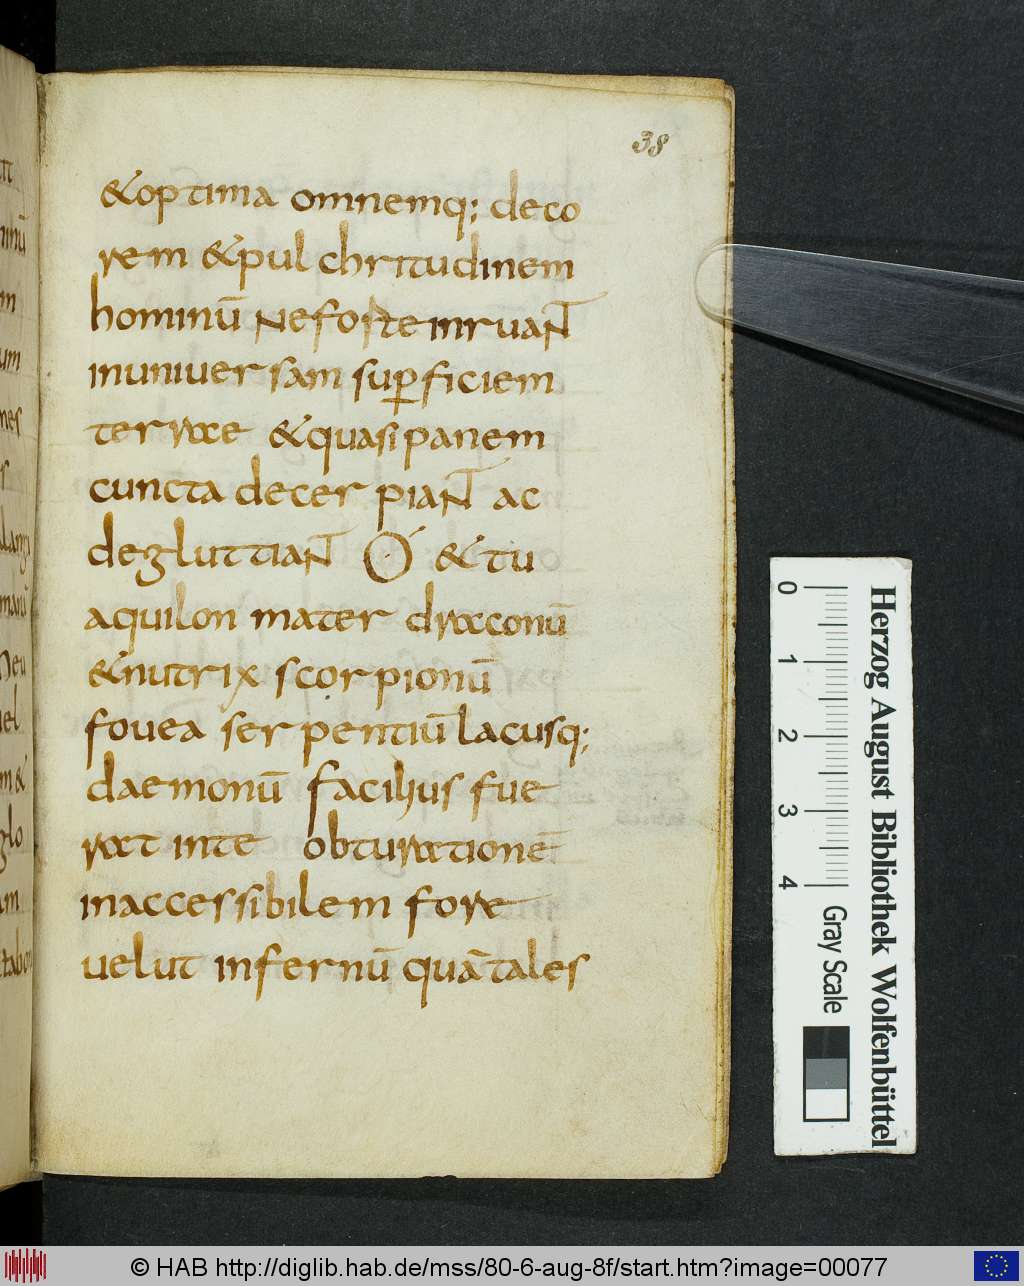 38
&optima omnemq; deco
rem &pulchritudinem
hominū Ne forte inruaNT
inuniuersam suꝑficiem
terrae &quasi panem
cuncta decerpiaNT ac
degluttiaNT O &tu
aquilon mater draconū
&nutrix scorpionū
fouea serpentiū lacusq;
daemonū facilius fue
rat inte obturationē
inaccessibilem fore
uelut infernū quā tales
Herzog August Bibliothek Wolfenbüttel
0 1 2 3 4
Gray Scale
© HAB http://diglib.hab.de/mss/80-6-aug-8f/start.htm?image=00077